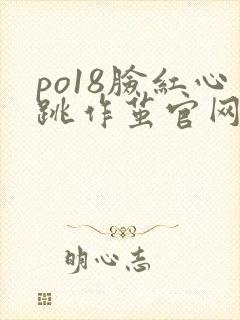 po18臉紅心
跳作茧官网
明心志